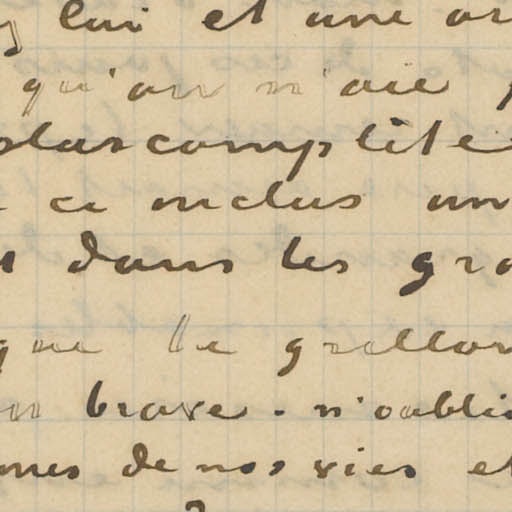 lui et une
qu'on n'aie
plus complète
ci inclus un
dans les gra
que le grillon
brave. n'oubli
de nos vies et